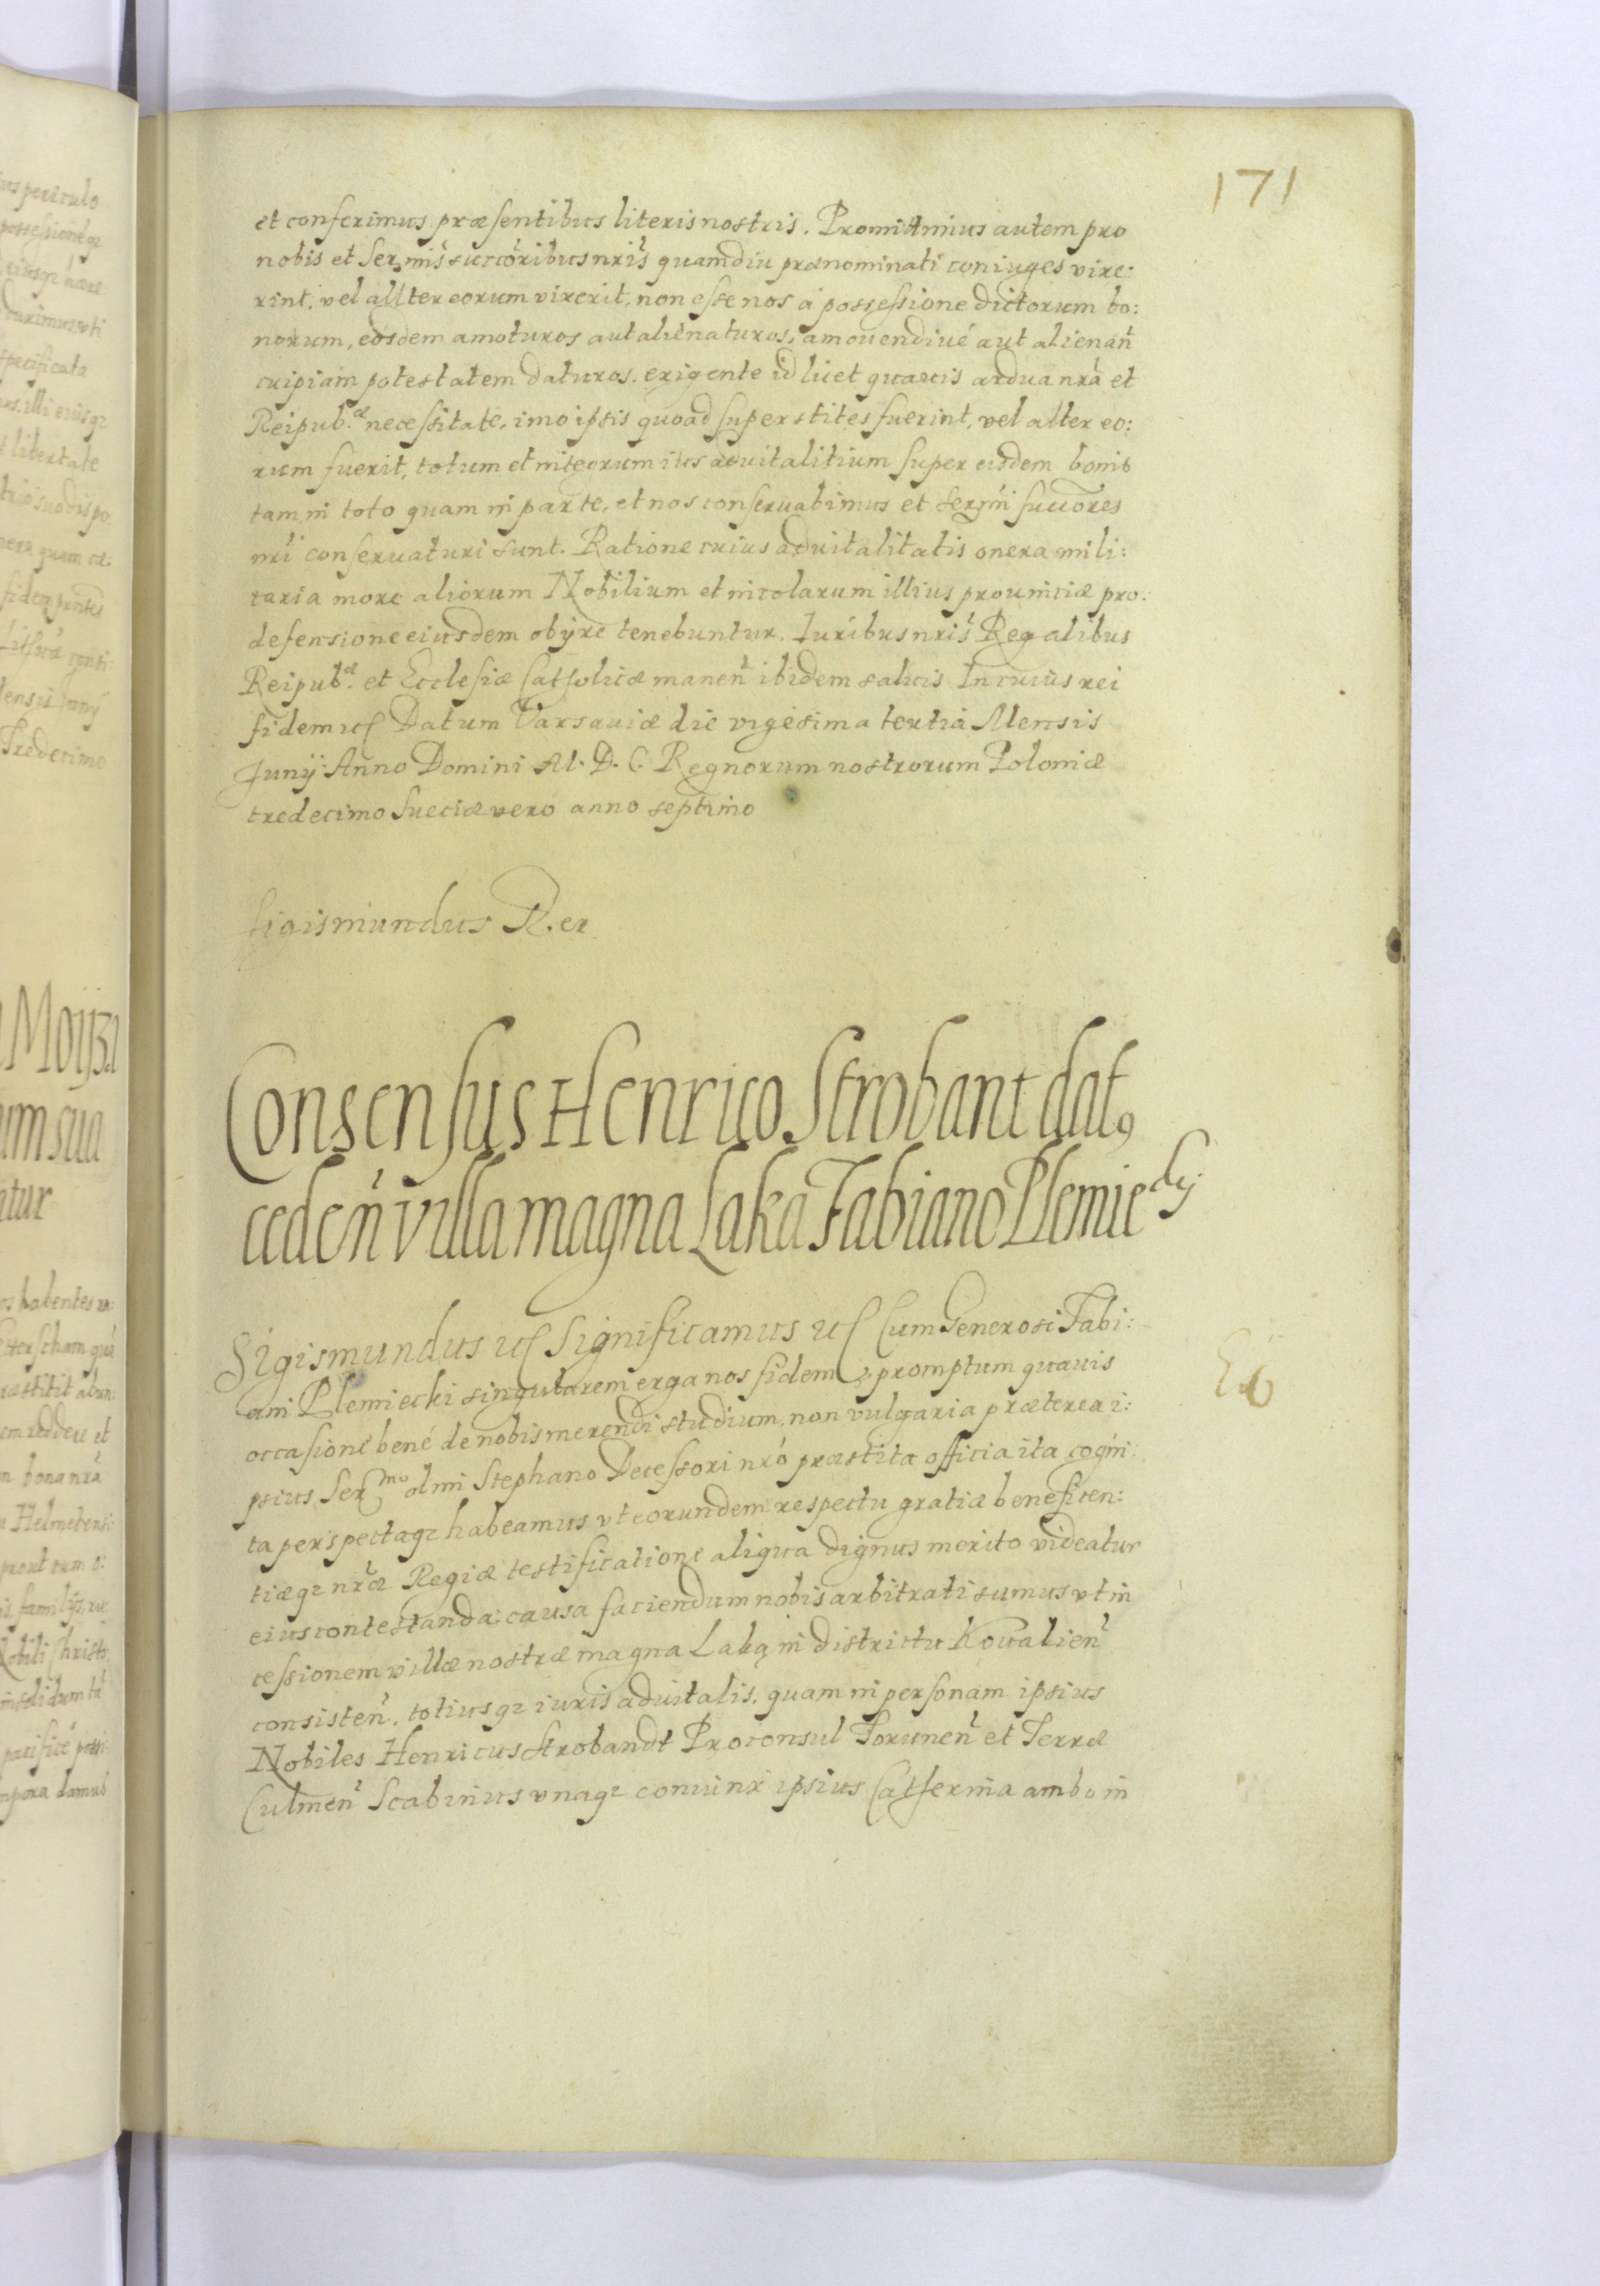 171
et conferimus præsentibus literis nostris. Promittimus autem pro
nobis et Ser,mis succoribus nris quamdiu prænominati coniuges vixe:
rint, vel allter eorum vixerit, non esse nos á possessione dictorum bo:
norum, eosdem amoturos aut alienaturos, amouendiué aut alienan
cuipiam potestatem daturos. exigente id licet quauis ardua nra et
Reipub.æ necessitate, imo ipsis quoad superstites fuerint, vel alter eo:
rum fuerit, totum et integrum ius aduitalitium super eisdem bonis
tam in toto quam in parte, et nos conseruabimus et sermi succores
nri conseruaturi sunt. Ratione cuius aduitalitatis onera mili:
taria more aliorum Nobilium et incolarum illius prouinciæ pro:
defensione eiusdem obÿre tenebuntur. Iuribus nris Regalibus
Reipub.æ et Ecclesiæ Catholicæ manen ibidem saluis In cuius rei
fidem uc Datum Varsauiæ die vigesima tertia Mensis
Junÿ Anno Domini M. D. C. Regnorum nostrorum Poloniæ
tredecimo Sueciæ vero anno septimo
Sigismundus Rex
Consensus Henrico Strobant dat9
ceden villa magna Laka Fabiano Plemieckÿ
Sigismundus uc Significamus uc Cum Generosi Fabi:
ani Plemiecki singularem erga nos fidem, promptum quauis
occasione bené de nobis merendi studium, non vulgaria præterea i:
psius Sermo olim Stephano Decessori nró præstita officia ita cogni:
ta perspectaq3 habeamus vt eorundem respectu gratiæ beneficen:
tiæq3 nræ Regiæ testificatione aliqua dignus merito videatur
eius contestanda causa faciendum nobis arbitrati sumus vt in
cessionem villæ nostræ magna Laką in districtu Kowalien
consisten, totiusq3 iuris aduitalis, quam in personam ipsius
Nobiles Henricus Strobandt Proconsul Torunen et Terræ
Culmen Scabinus vnaq3 coniunx ipsius Catherina ambo in